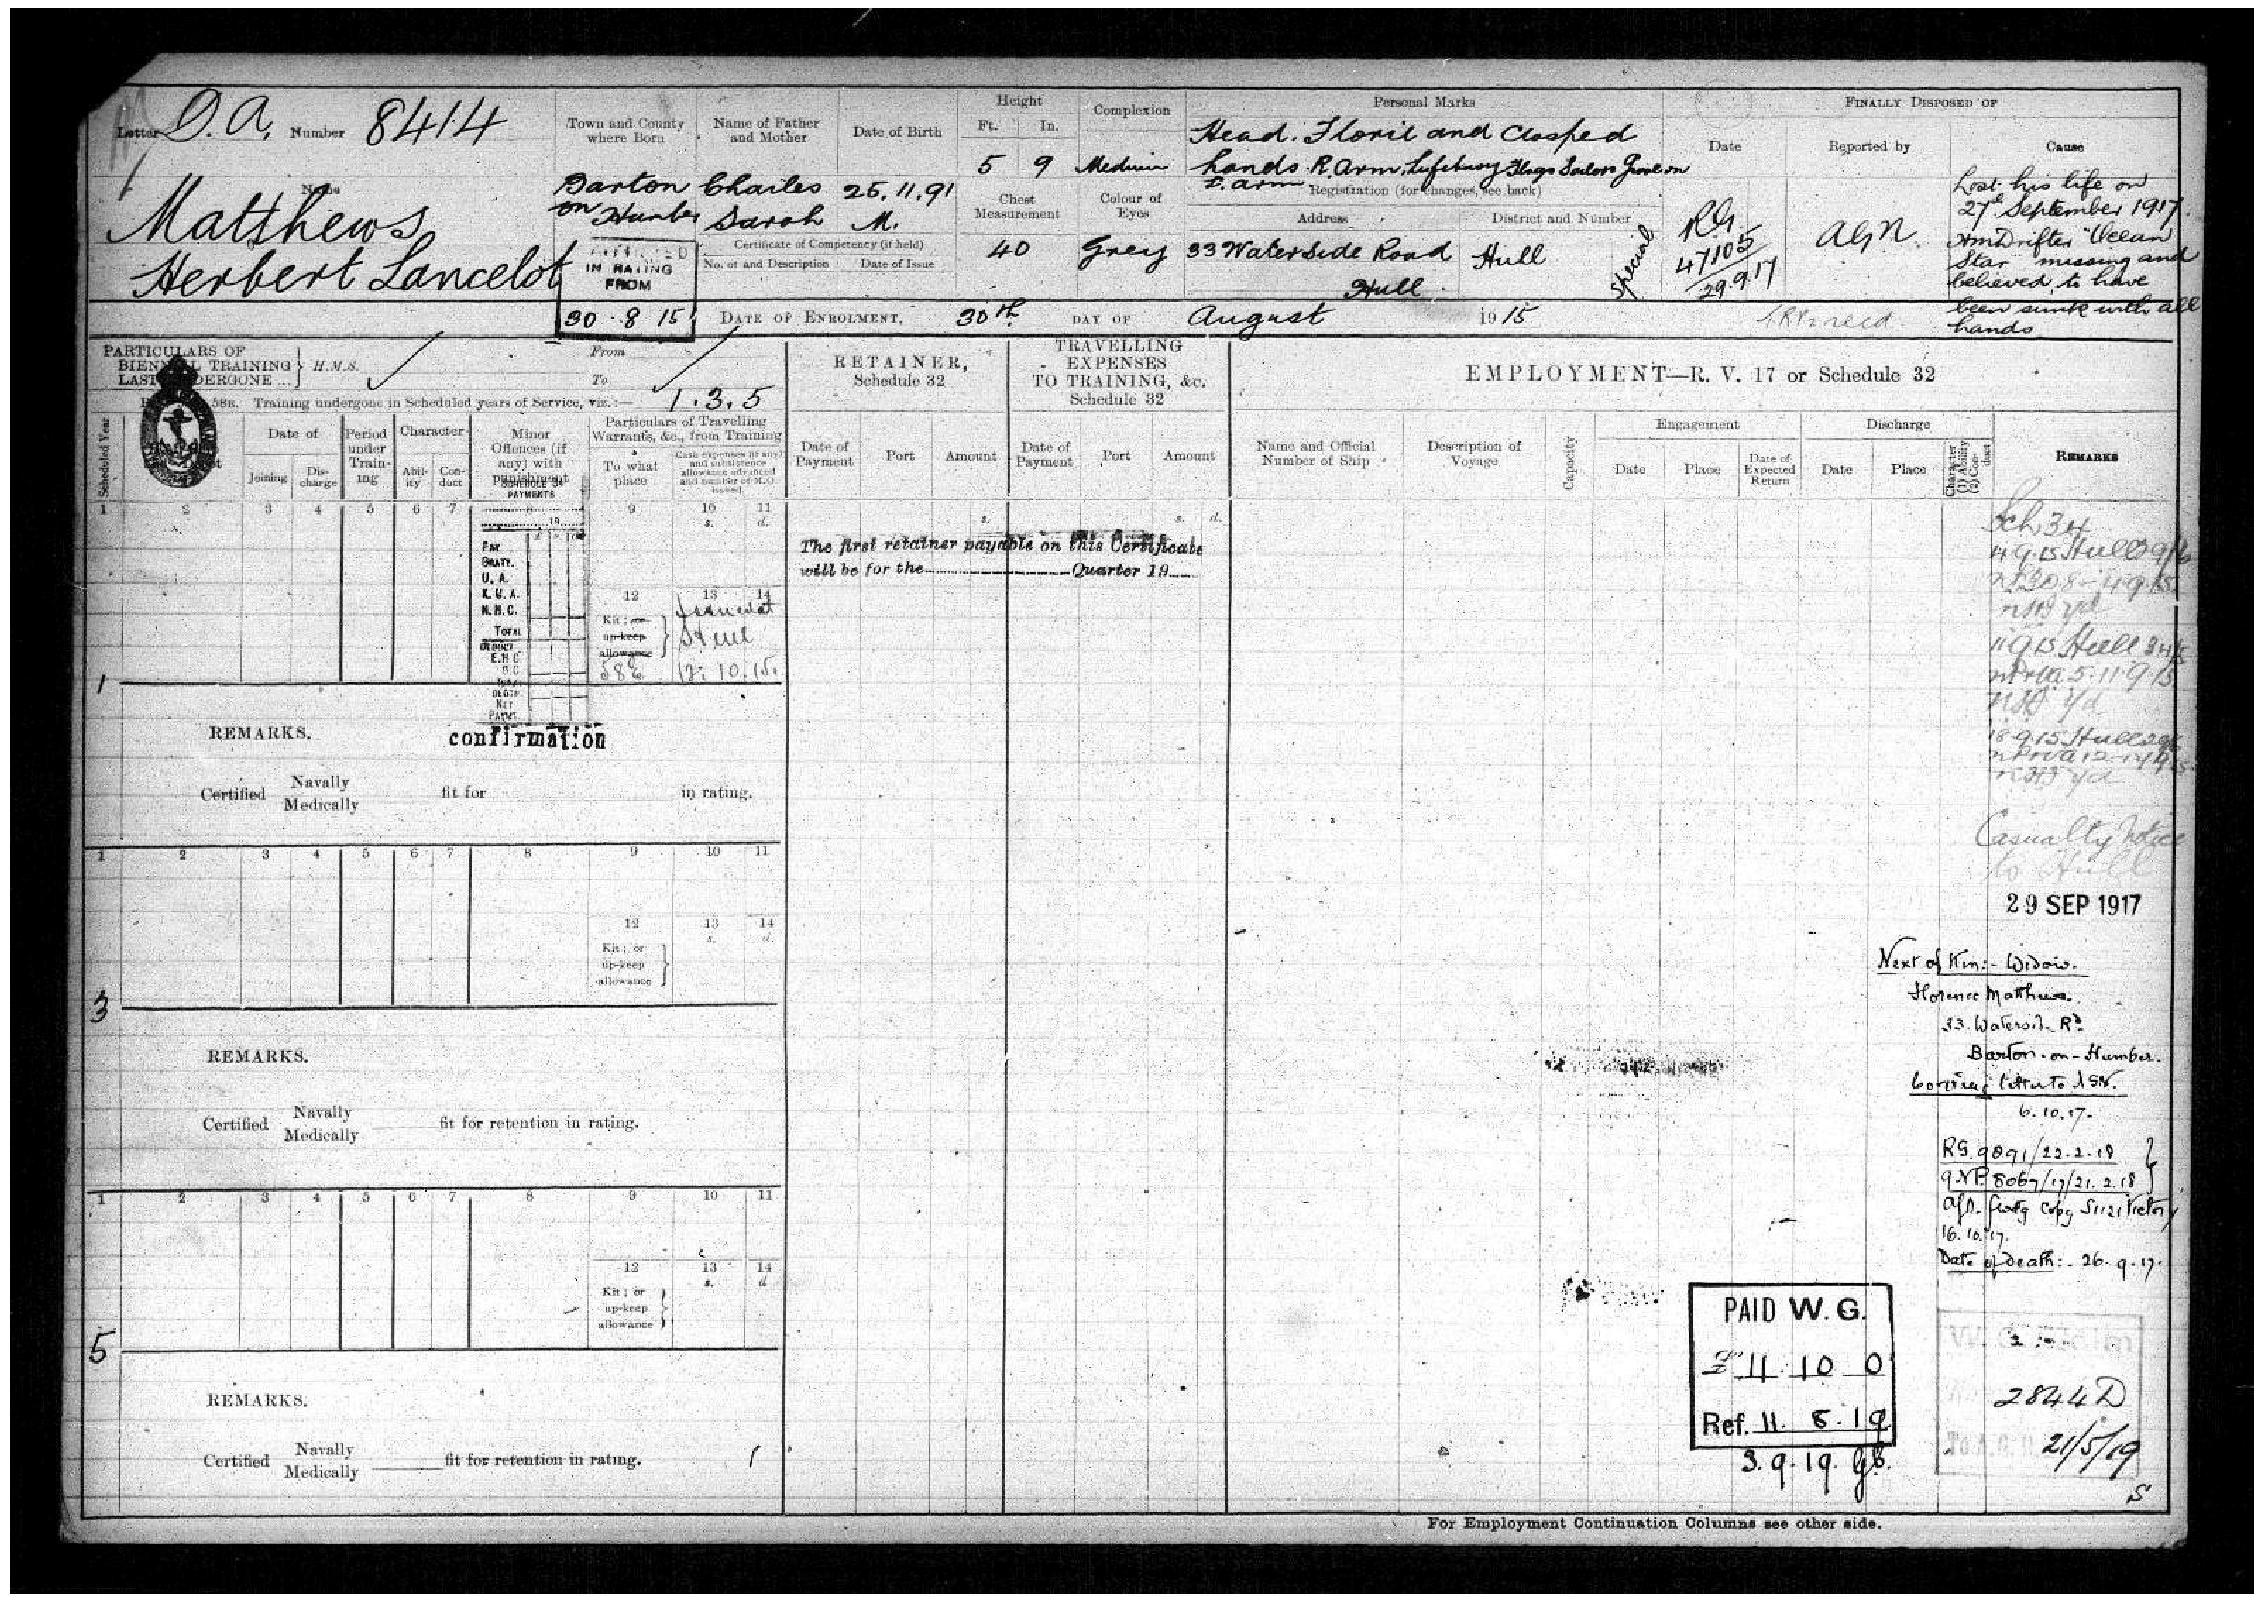 Letter D.A. Number 8414
Name
Matthews
Herbert Lancelot
Town and County where Born
Barton on Humber
Name of Father and Mother
Charles
Sarah M.
Date of Birth
25.11.91
Certificate of Competency (if held)
No. of and Description Date of Issue
IN RATING
FROM
30 · 8 15
Height
Ft. In.
5 9
Complexion
Medium
Chest Measurement
40
Colour of Eyes
Grey
Personal Marks
Head. and Clasped
hands R. Arm.
Registration (for changes, see back)
Address District and Number
33 Waterside Road Hull
Hull
Special
FINALLY DISPOSED OF
Date Reported by Cause
RG
47105
29.9.17
AGN.
Lost his life on
27th September 1917.
HM Drifter "Ocean
Star missing and
believed to have
been sunk with all
hands
DATE OF ENROLMENT, 30th DAY OF August 1915
PARTICULARS OF
BIENNIAL TRAINING
LAST UNDERGONE ...
H.M.S.
From
To
58E. Training undergone in Scheduled years of Service, viz.:— 1.3.5
Scheduled Year
Date of
Joining Discharge
Period under Training
Character
Ability Conduct
Minor Offences (if any) with punishment
SCHEDULE 34
PAYMENTS
Particulars of Travelling Warrants, &c., from Training
To what place
Cash expenses (if any) and subsistence allowance advanced and number of M.O. issued.
RETAINER,
Schedule 32
Date of Payment Port Amount
TRAVELLING
EXPENSES
TO TRAINING, &c.
Schedule 32
Date of Payment Port Amount
EMPLOYMENT—R. V. 17 or Schedule 32
Name and Official Number of Ship
Description of Voyage
Capacity
Engagement
Date Place Date of Expected Return
Discharge
Date Place
Character (1) Ability (2) Conduct
REMARKS
1 2 3 4 5 6 7 9 10 11
s. d.
s. s. d.
PAY
GRATY.
U. A.
K. U. A.
N. H. C.
TOTAL
NET
PAYMT.
12 13 14
Kit; or
up-keep
allowance
58E
Hull
12.10.15.
The first retainer payable on this Certificate
will be for the Quarter 19
1
REMARKS.
confirmation
Certified Navally Medically fit for in rating.
1 2 3 4 5 6 7 8 9 10 11
12 13 14
s. d.
Kit; or
up-keep
allowance
3
REMARKS.
Certified Navally Medically fit for retention in rating.
1 2 3 4 5 6 7 8 9 10 11
12 13 14
s. d
Kit; or
up-keep
allowance
5
REMARKS.
Certified Navally Medically fit for retention in rating.
Sch 34
4.9.15 Hull
11.9.15 Hull
18.9.15 Hull
Casualty Notice
to Hull
29 SEP 1917
Next of Kin:- Widow.
Florence Matthews.
33. Waterside Rd
Barton-on-Humber.
6.10.17.
RG. 9891/22.2.18
8067/17/21.2.18
16.10.17.
Date of Death:- 26.9.17.
PAID W. G.
£ 11 10 0
Ref. 11. 8. 19
3.9.19.
2844 D
21/5/19
S
For Employment Continuation Columns see other side.